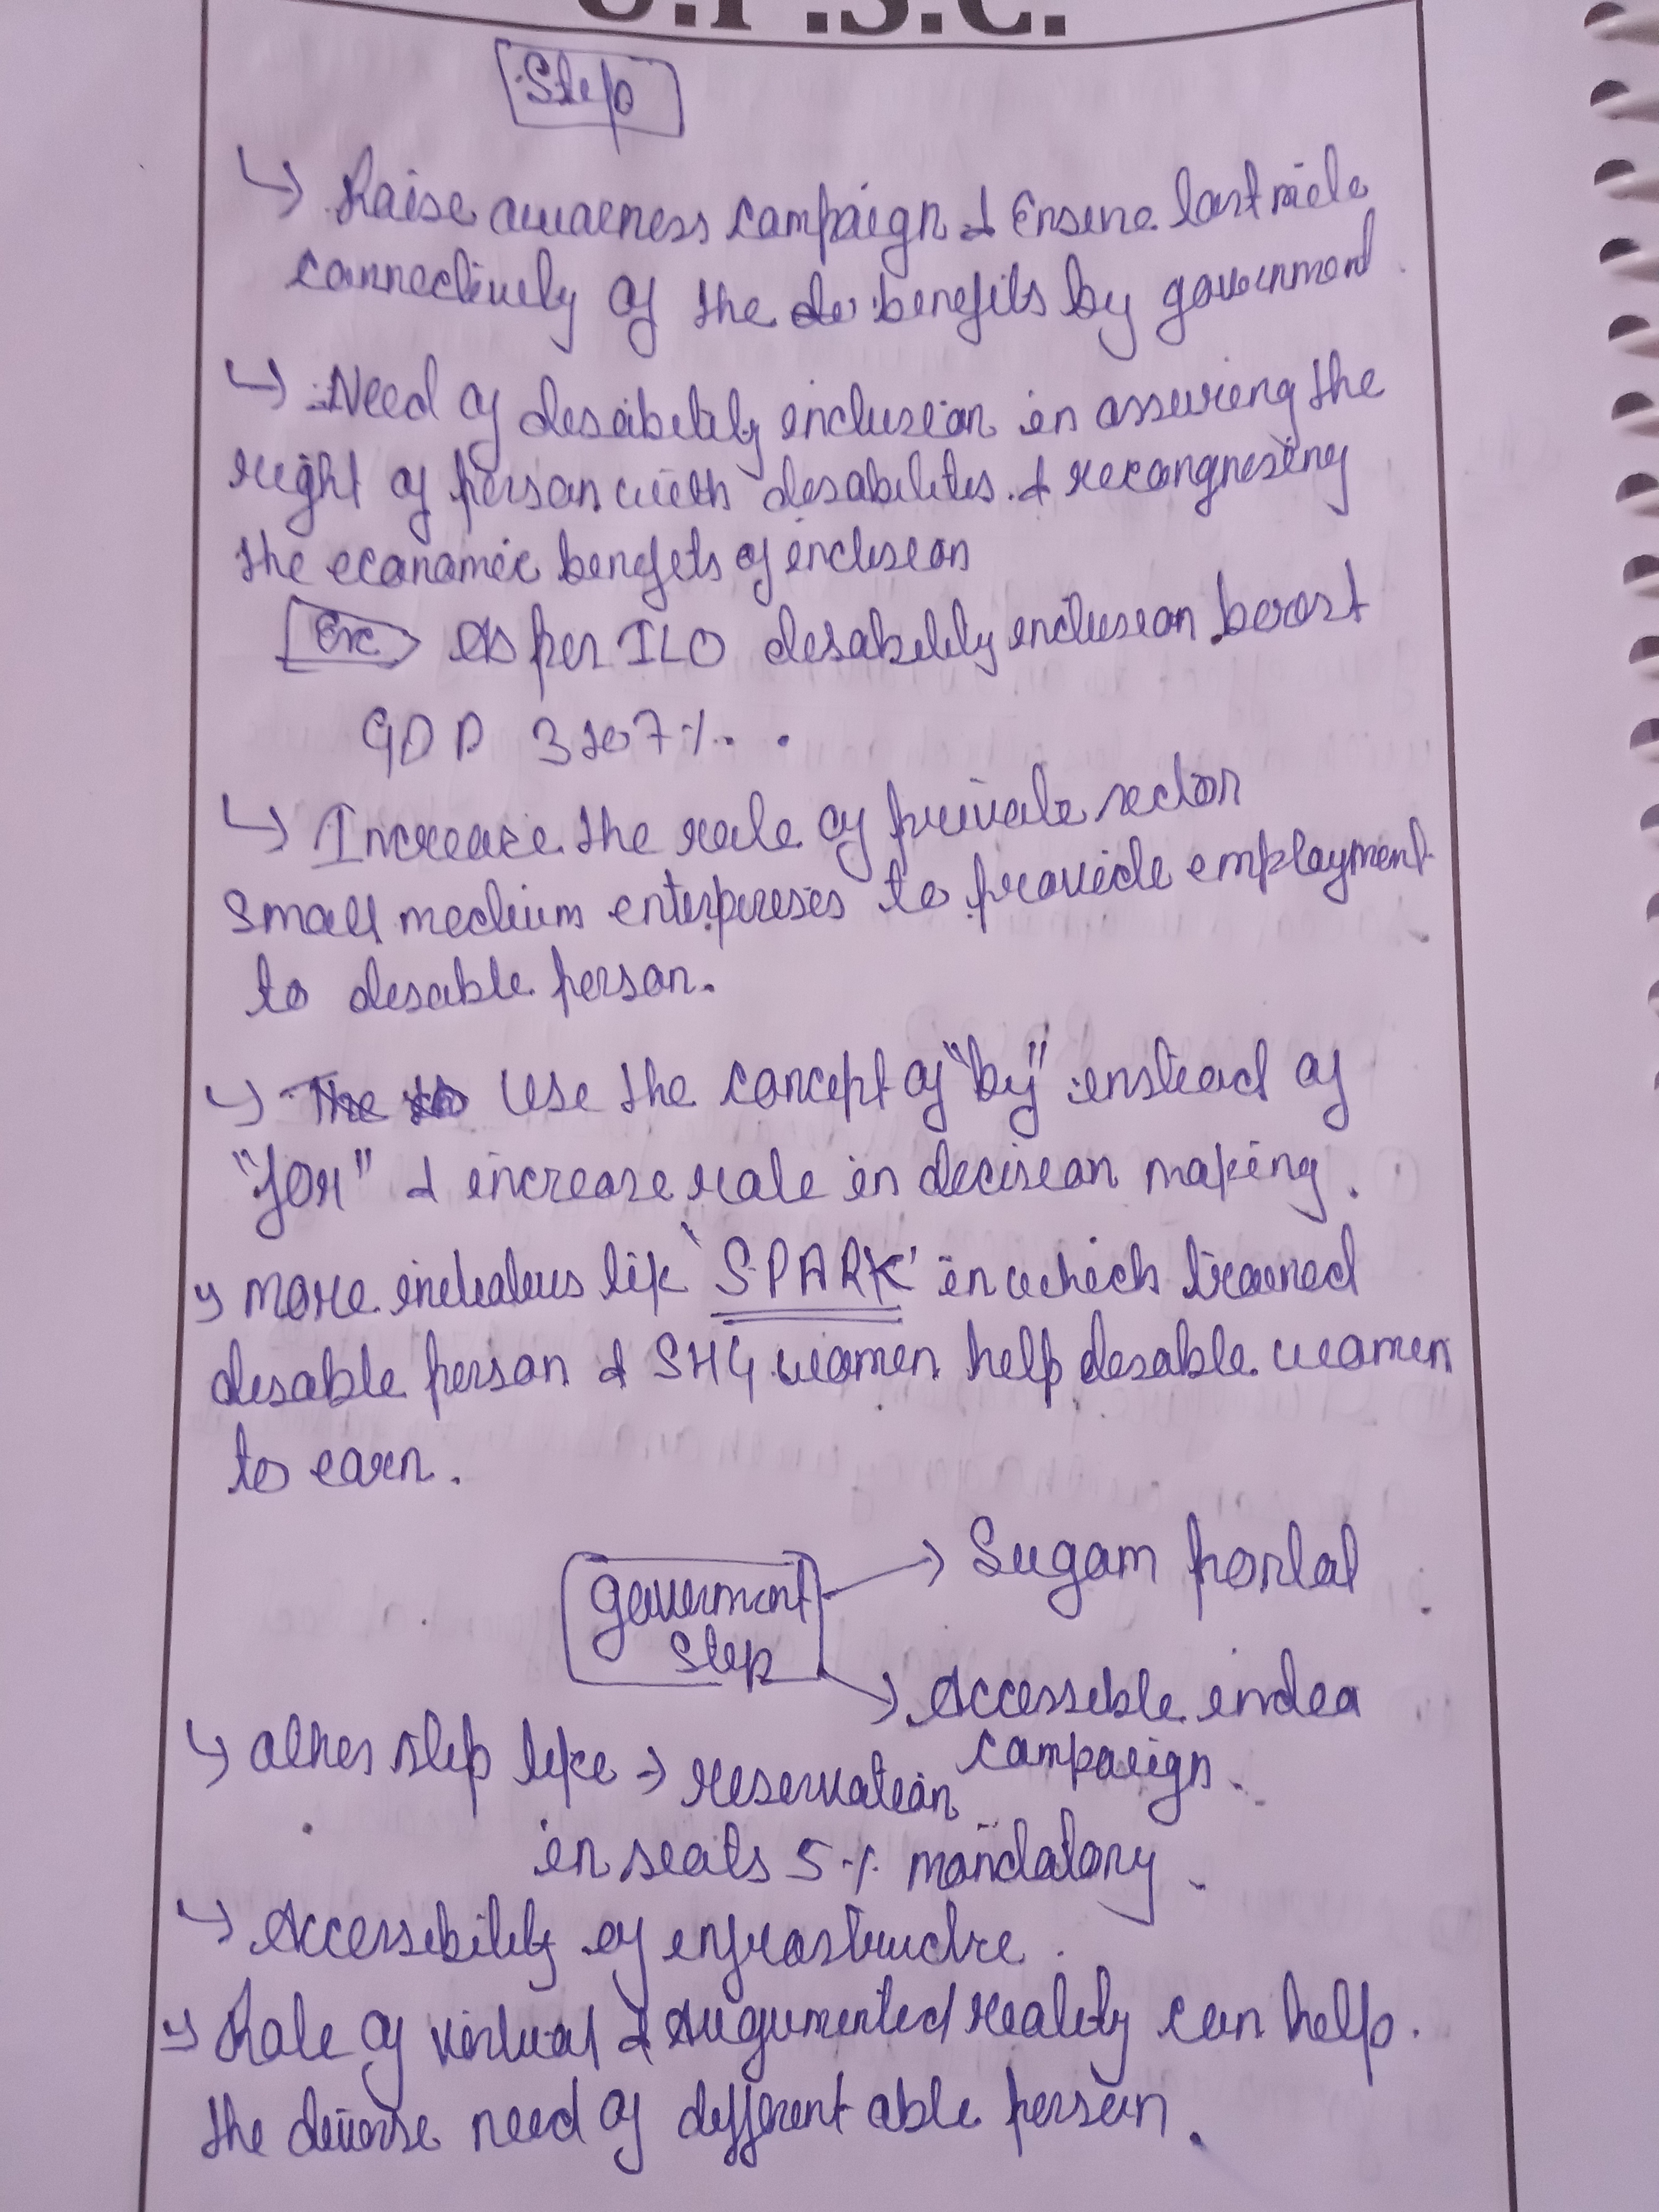 U.P.S.C.
Step
↳ Raise awarness campaign & Ensure last mile
connectively of the benefits by government.
↳ Need of desibility inclusion in assuring the
right of person with desabilites. & recongnesing
the economic benefits of inclusion
Ex As per ILO desability inclusion boost
GDP 3 to 7%.
↳ Increase the role of private sector
small medium enterpreses to provide employment
to desable person.
↳ Use the concept of "by" instead of
"for" & increase role in decision making.
↳ more like 'SPARK' in which trained
desable person & SHG women help desable women
to earn.
Government Step → Sugam portal
→ Accessible india
campaign.
↳ other step like → reservation
in seats 5% mandatory.
↳ Accessibility of infrastructre.
↳ Role of virtual & Augumented reality can help.
the diverse need of different able person.